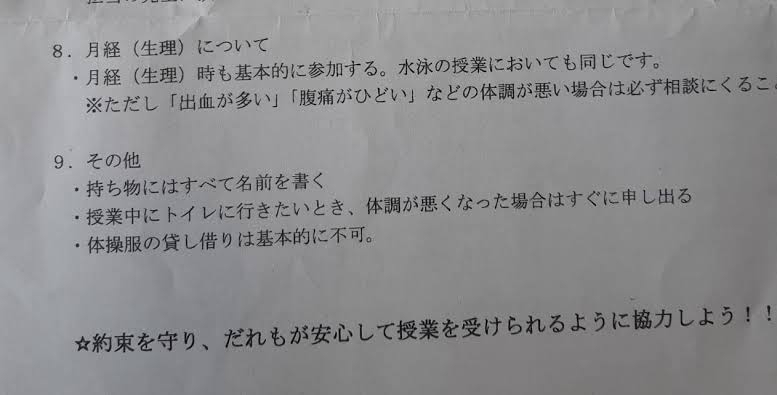 8．月経（生理）について
・月経（生理）時も基本的に参加する。水泳の授業においても同じです。
※ただし「出血が多い」「腹痛がひどい」などの体調が悪い場合は必ず相談にくること
9．その他
・持ち物にはすべて名前を書く
・授業中にトイレに行きたいとき、体調が悪くなった場合はすぐに申し出る
・体操服の貸し借りは基本的に不可。
☆約束を守り、だれもが安心して授業を受けられるように協力しよう！！